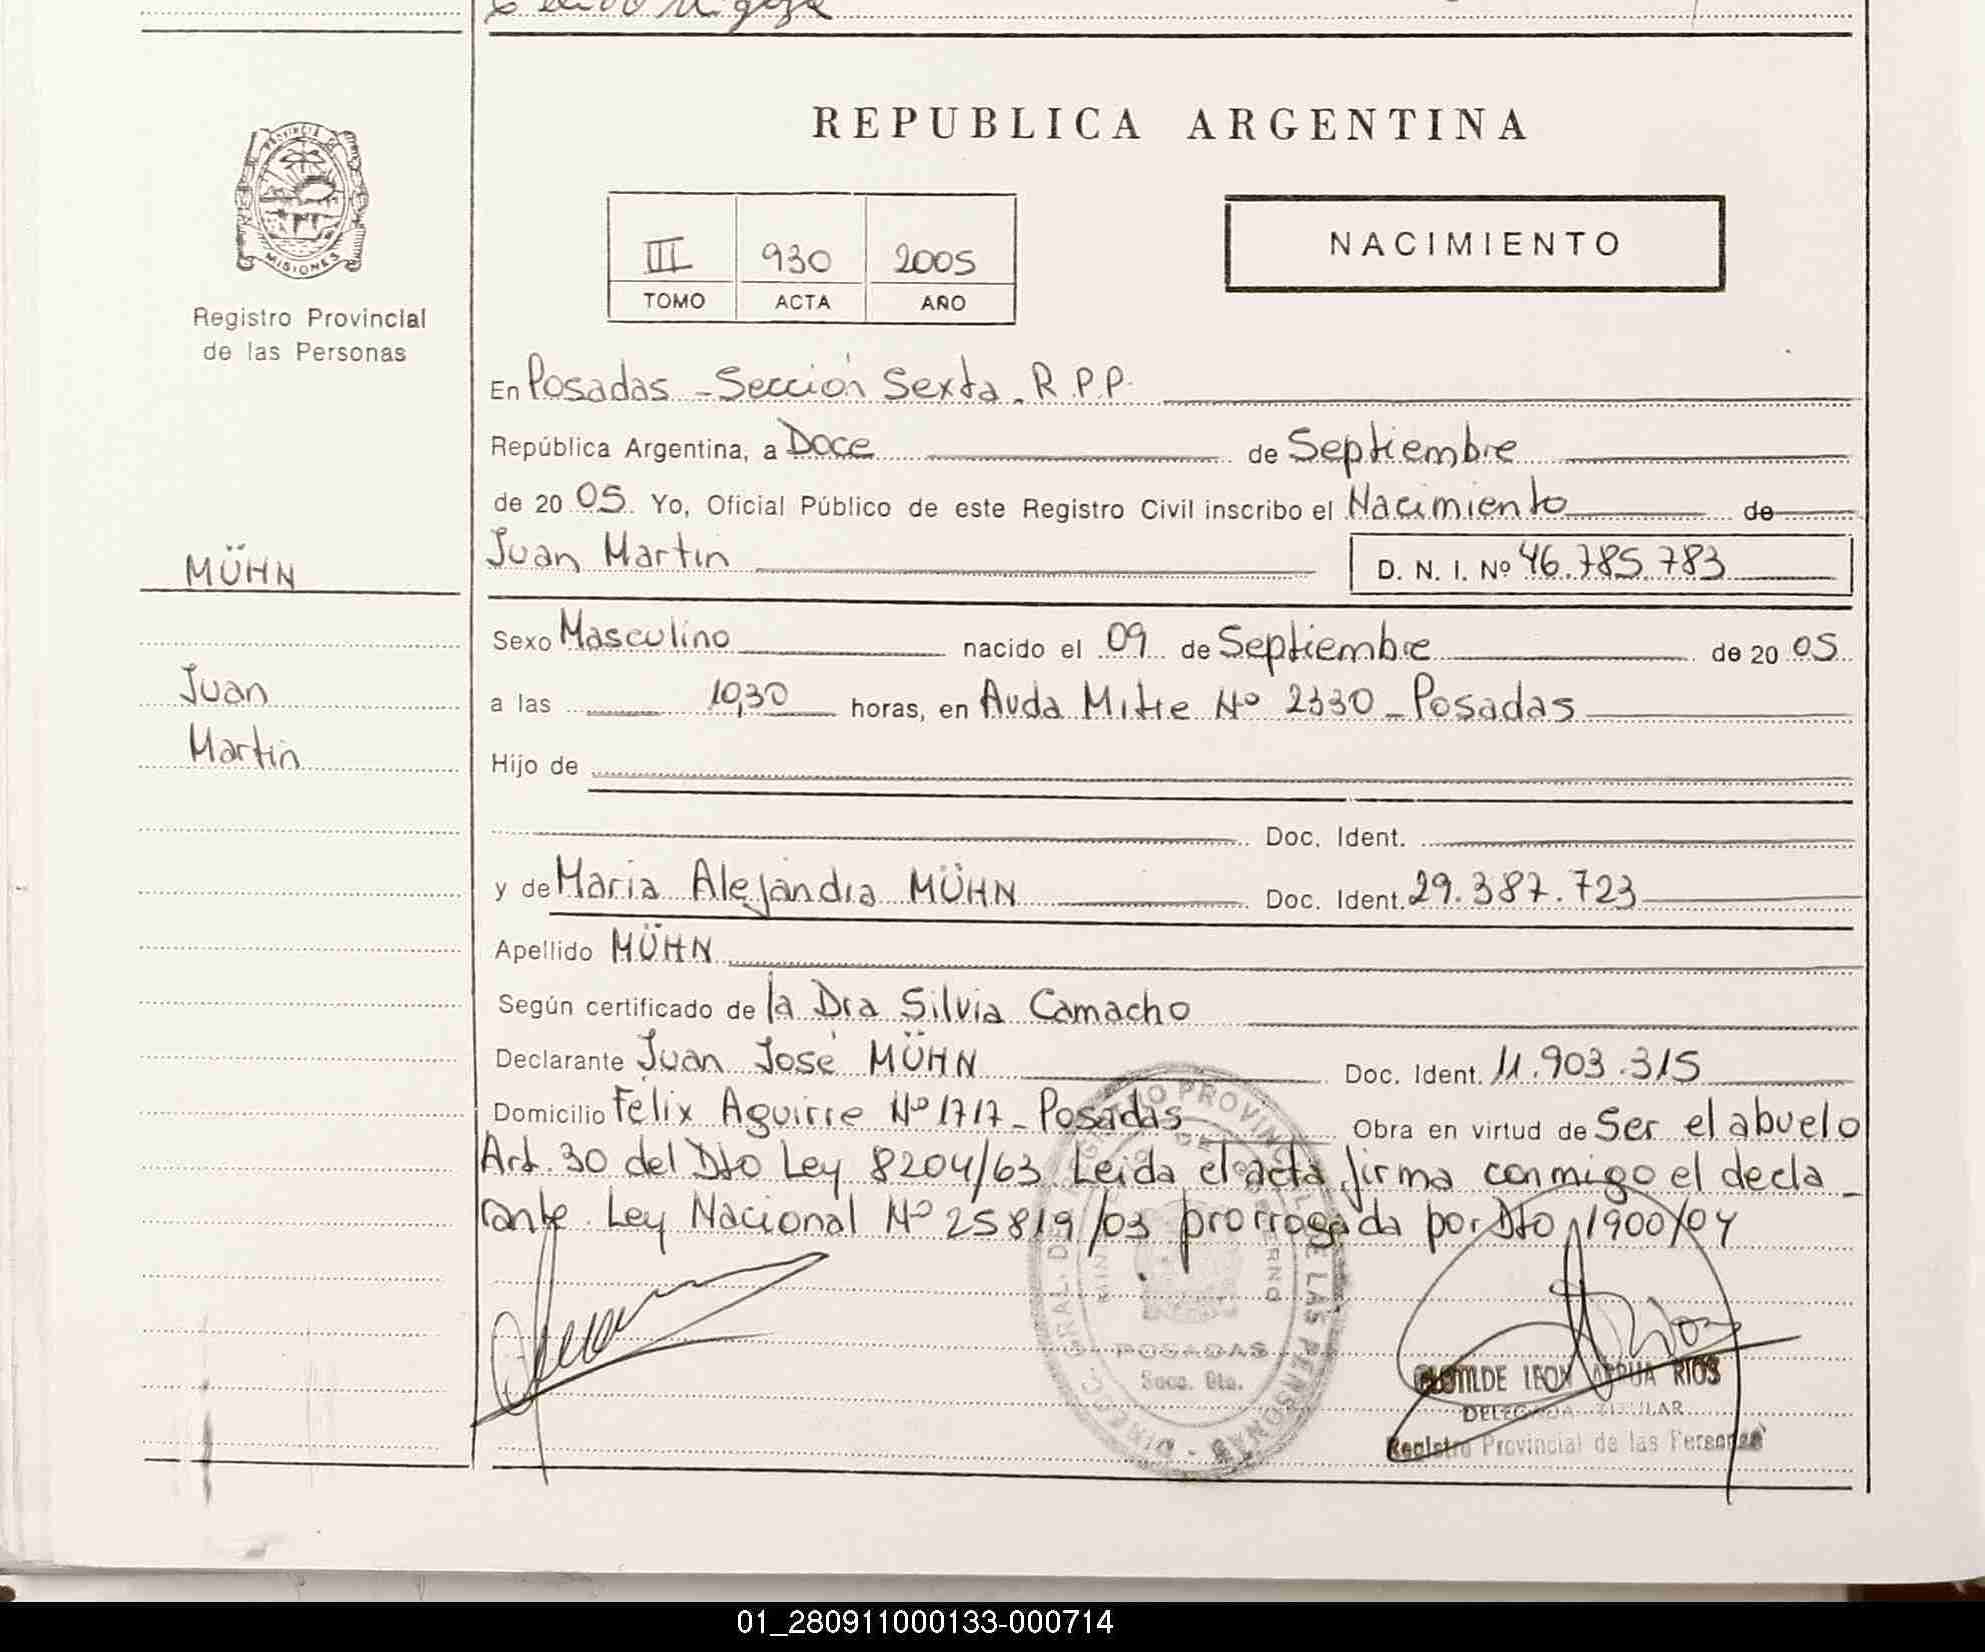 REPUBLICA ARGENTINA
PROVINCIA
MISIONES
III 930 2005
TOMO ACTA AÑO
NACIMIENTO
Registro Provincial
de las Personas
En Posadas - Sección Sexta. R.P.P.
República Argentina, a Doce de Septiembre
de 20 05. Yo, Oficial Público de este Registro Civil inscribo el Nacimiento de
MÜHN
Juan Martin D. N. I. Nº 46.785.783
Sexo Masculino nacido el 09 de Septiembre de 20 05
Juan
a las 10,30 horas, en Avda Mitre Nº 2330 - Posadas
Martin
Hijo de
Doc. Ident.
y de Maria Alejandra MÜHN Doc. Ident. 29.387.723
Apellido MÜHN
Según certificado de la Dra Silvia Camacho
Declarante Juan José MÜHN Doc. Ident. 11.903.315
Domicilio Félix Aguirre Nº 1717 - Posadas Obra en virtud de Ser el abuelo
Art. 30 del Dto Ley 8204/63 Leida el acta firma conmigo el decla-
rante. Ley Nacional Nº 25819/03 prorrogada por Dto 1900/04
POSADAS
Secc. 6ta.
CLOTILDE LEON RIOS
DELEGADA TITULAR
Registro Provincial de las Personas
01_280911000133-000714